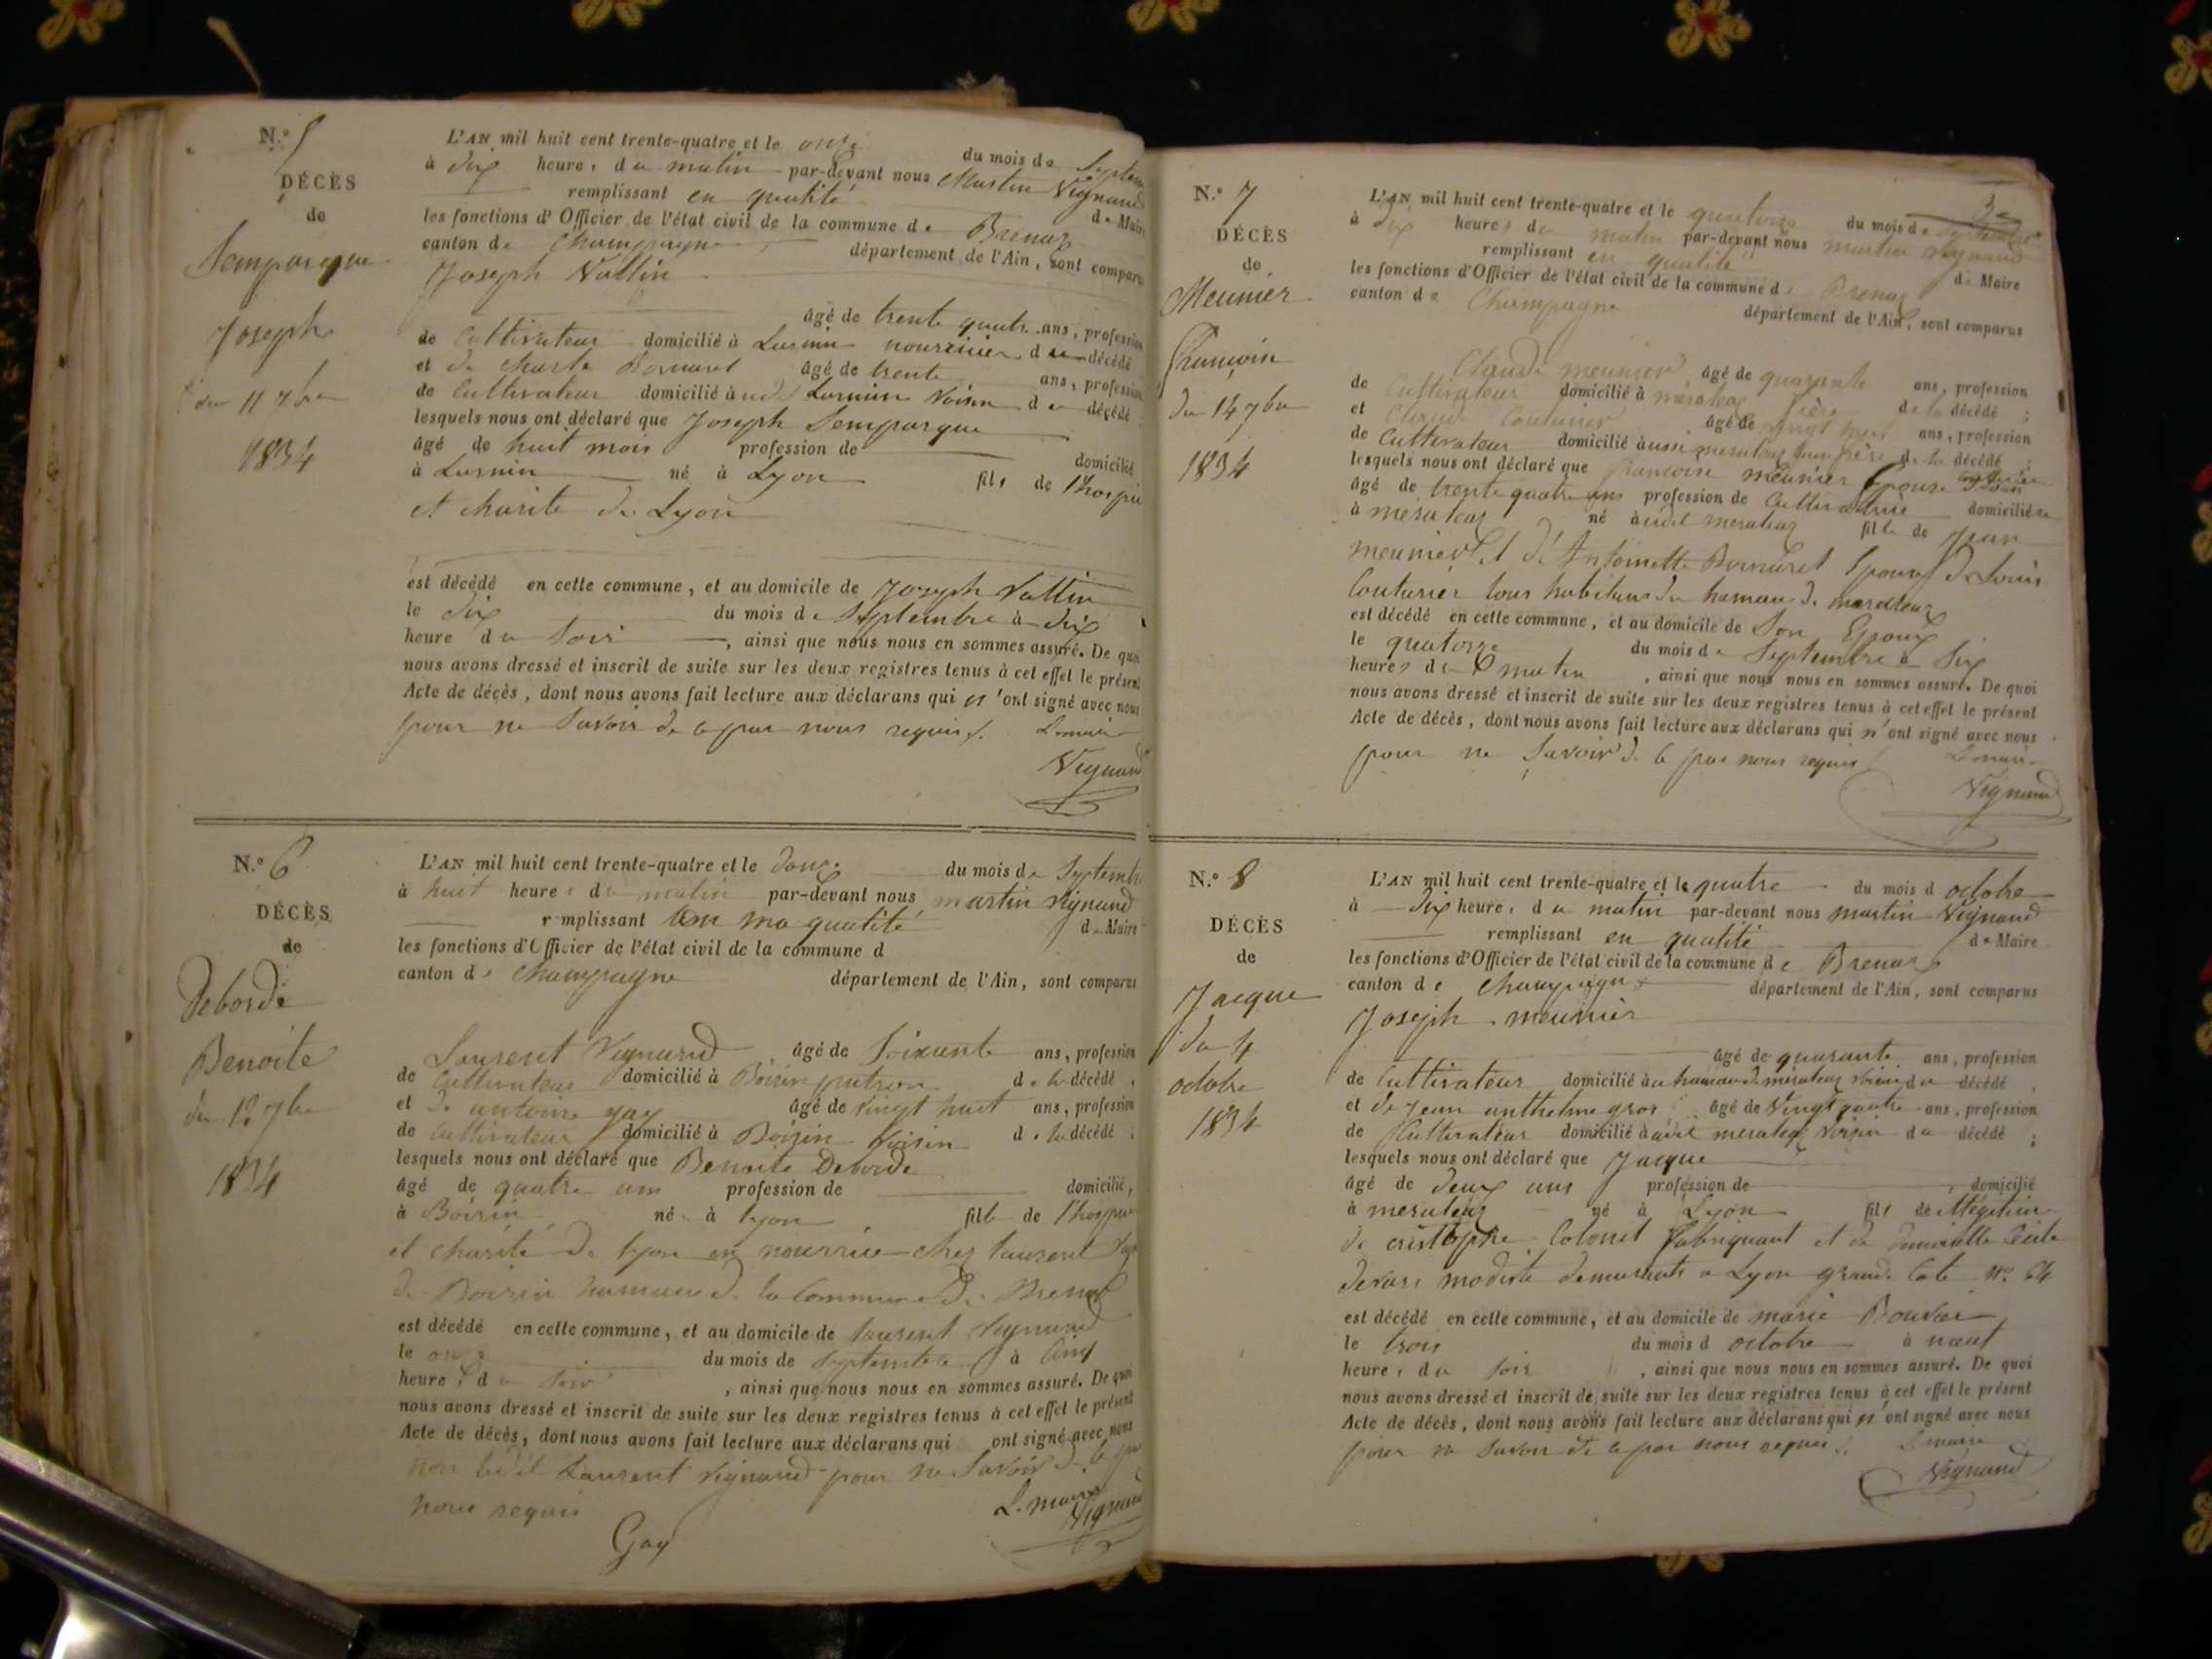 N.° 5
DÉCÈS
de
Joseph
du 11 7bre
1834
L'AN mil huit cent trente-quatre et le onze du mois de Septem
à dix heures du matin par-devant nous Martin Vignand
remplissant en qualité de Maire
les fonctions d'Officier de l'état civil de la commune de Brenaz
canton de Champagne département de l'Ain, sont comparus
Joseph Vallin
âgé de trente quatre ans, profession
de Cultivateur domicilié à nourricier du décédé
et de âgé de trente ans, profession
de Cultivateur domicilié à voisin du décédé
lesquels nous ont déclaré que Joseph
âgé de huit mois profession de domicilié
à né à Lyon fils de l'hospi
et charité de Lyon
est décédé en cette commune, et au domicile de Joseph Vallin
le dix du mois de Septembre à dix
heure du Soir, ainsi que nous nous en sommes assuré. De quoi
nous avons dressé et inscrit de suite sur les deux registres tenus à cet effet le présent
Acte de décès, dont nous avons fait lecture aux déclarans qui n'ont signé avec nous
pour ne Savoir de ce par nous requis. Le maire
Vignand
N.° 6
DÉCÈS
de
Deborde
Benoite
du 12 7bre
1834
L'AN mil huit cent trente-quatre et le douze du mois de Septembre
à huit heures du matin par-devant nous martin vignand
remplissant en ma qualité de Maire
les fonctions d'Officier de l'état civil de la commune d
canton de Champagne département de l'Ain, sont comparus
Laurent Vignand âgé de Soixante ans, profession
de Cultivateur domicilié à Boirin patron de la décédé,
et de antoine gay âgé de vingt huit ans, profession
de Cultivateur domicilié à Boirin Voisin de la décédé;
lesquels nous ont déclaré que Benoite Deborde
âgé de quatre ans profession de domicilié,
à Boirin née à lyon fille de l'hospice
et charité de lyon en nourrice chez laurent
de Boirin hameau de la Commune de Brenaz
est décédé en cette commune, et au domicile de laurent Vignand
le onze du mois de septembre à cinq
heures du Soir, ainsi que nous nous en sommes assuré. De quoi
nous avons dressé et inscrit de suite sur les deux registres tenus à cet effet le présent
Acte de décès, dont nous avons fait lecture aux déclarans qui ont signé avec nous
non ledit Laurent vignand pour ne Savoir de ce par
nous requis L. maire
Gay Vignand
N.° 7
DÉCÈS
de
Meunier
Françoise
du 14 7bre
1834
L'AN mil huit cent trente-quatre et le quatorze du mois de Septembre
à dix heures du matin par-devant nous martin vignand
remplissant en qualité de Maire
les fonctions d'Officier de l'état civil de la commune de Brenaz
canton de Champagne département de l'Ain, sont comparus
Claude meunier âgé de quarante ans, profession
de Cultivateur domicilié à meraleaz frère de la décédé;
et Claude Couturier âgé de vingt huit ans, profession
de Cultivateur domicilié à aussi meraleaz beau frère de la décédé;
lesquels nous ont déclaré que françoise meunier Epouse
âgé de trente quatre ans profession de Cultivatrice domiciliée
à meraleaz né à udit meraleaz fille de Jean
meunier et d'Antoinette Bornarel Epouse de Louis
Couturier tous habitans du hameau de meraleaz
est décédé en cette commune, et au domicile de Son Epoux
le quatorze du mois de Septembre à Six
heures du matin, ainsi que nous nous en sommes assuré. De quoi
nous avons dressé et inscrit de suite sur les deux registres tenus à cet effet le présent
Acte de décès, dont nous avons fait lecture aux déclarans qui n'ont signé avec nous
pour ne Savoir de ce par nous requis Le maire
Vignand
N.° 8
DÉCÈS
de
Jacque
du 4
octobre
1834
L'AN mil huit cent trente-quatre et le quatre du mois d octobre
à dix heures du matin par-devant nous martin Vignand
remplissant en qualité de Maire
les fonctions d'Officier de l'état civil de la commune de Brenaz
canton de Champagne département de l'Ain, sont comparus
Joseph meunier
âgé de quarante ans, profession
de Cultivateur domicilié au hameau de meraleaz voisin du décédé,
et de Jean anthelme gros âgé de Vingt quatre ans, profession
de Cultivateur domicilié à meraleaz Voisin du décédé;
lesquels nous ont déclaré que Jacque
âgé de deux ans profession de, domicilié
à meraleaz né à Lyon fils
de cristophe Colonel fabriquant et de demoiselle Cécile
modiste demeurants a Lyon grande Cote n° 64
est décédé en cette commune, et au domicile de marie Bouvier
le trois du mois d octobre à neuf
heures du Soir, ainsi que nous nous en sommes assuré. De quoi
nous avons dressé et inscrit de suite sur les deux registres tenus à cet effet le présent
Acte de décès, dont nous avons fait lecture aux déclarans qui n'ont signé avec nous
pour ne Savoir de ce par nous requis. Le maire
Vignand